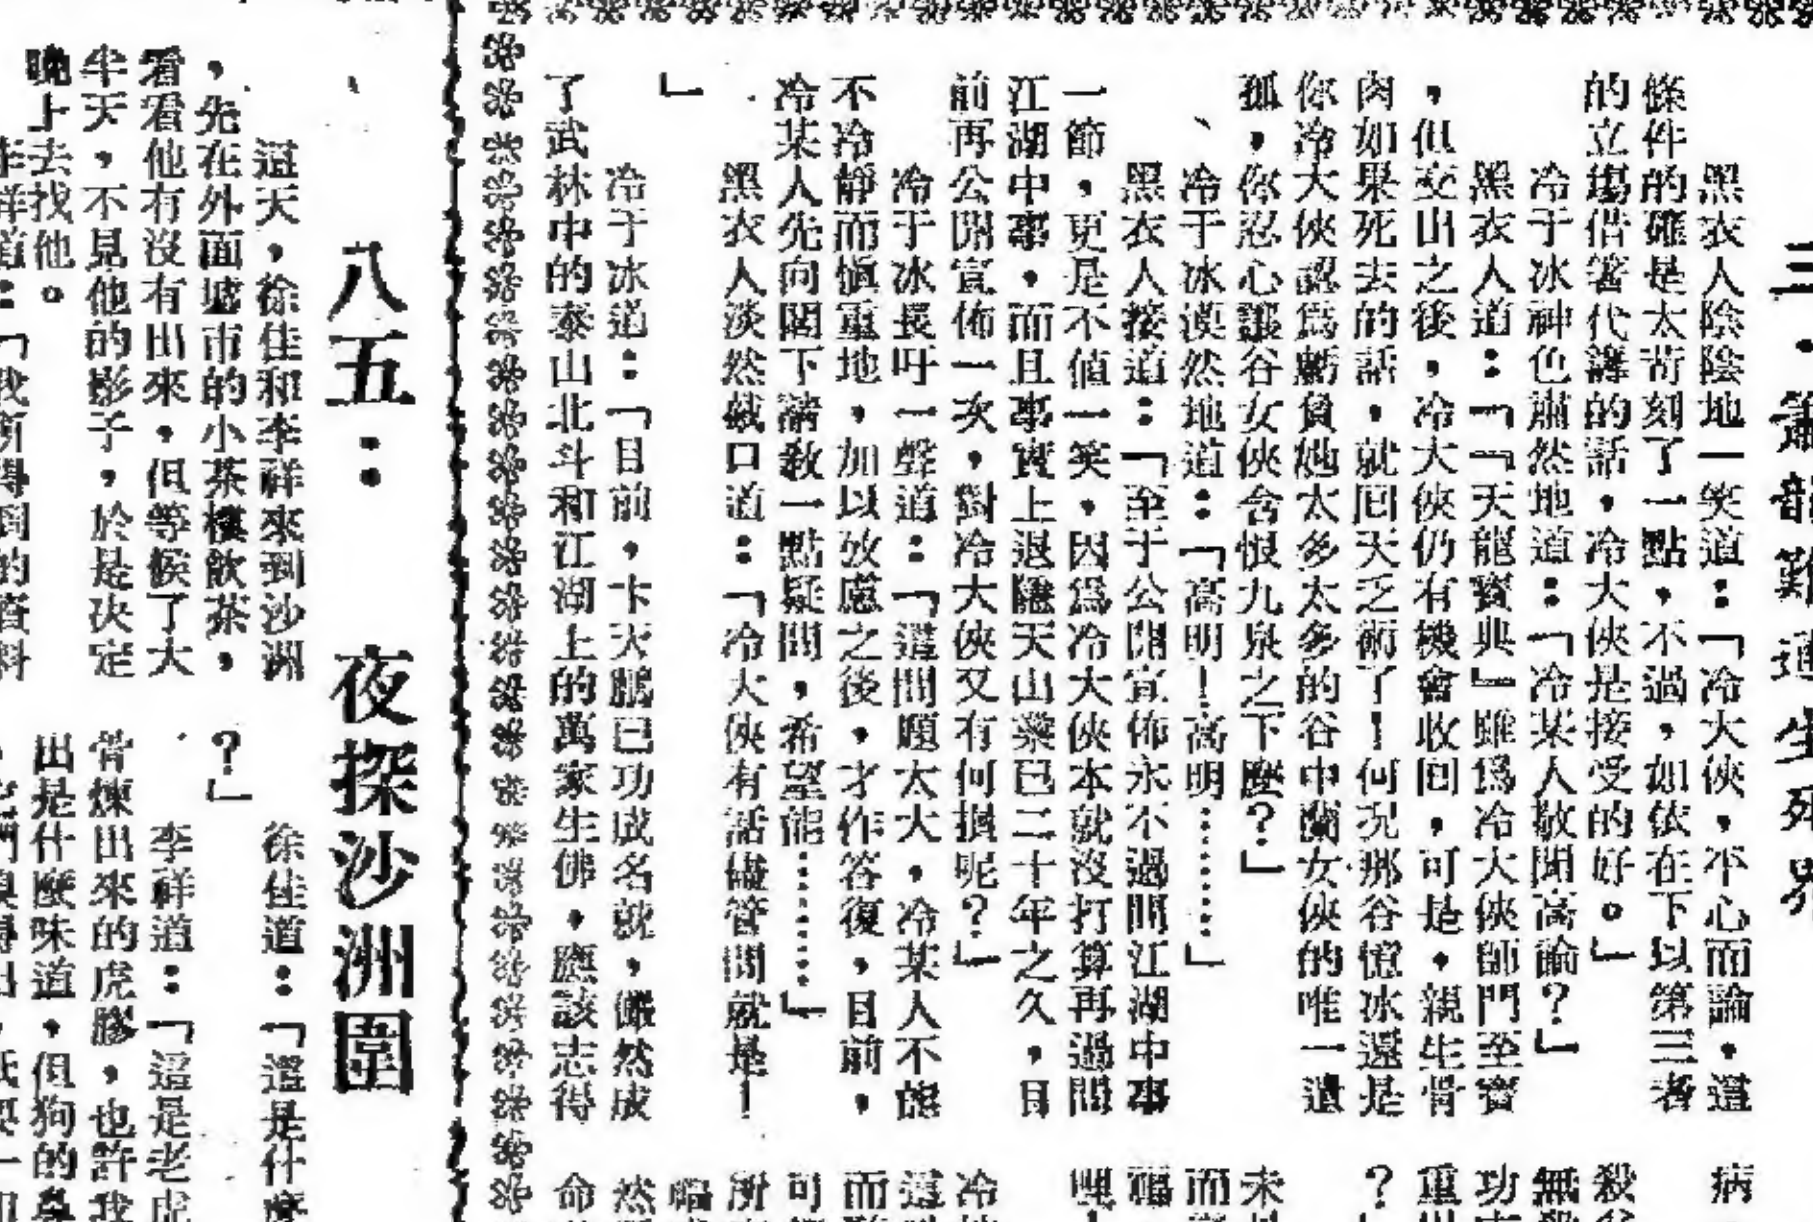 三・簫韻難
黑衣人陰陰地一笑道：「冷大俠，平心而論，這
條件的確是太苛刻了一點，不過，如依在下以第三者
的立場借箸代籌的話，冷大俠是接受的好。」
冷于冰神色肅然地道：「冷某人敬聞高論？」
黑衣人道：「『天龍寶典』雖爲冷大俠師門至寶
，但交出之後，冷大俠仍有機會收回，可是，親生骨
肉如果死去的話，就回天乏術了！何況那谷憶冰還是
你冷大俠認爲虧負她太多太多的谷中蘭女俠的唯一遺
孤，你忍心讓谷女俠含恨九泉之下麼？」
、冷于冰漠然地道：「高明！高明………」
黑衣人接道：「至于公開宣佈永不過問江湖中事
一節，更是不値一笑，因爲冷大俠本就沒打算再過問
江湖中事，而且事實上退隱天山業已二十年之久，目
前再公開宣佈一次，對冷大俠又有何損呢？」
冷于冰長吁一聲道：「這問題太大，冷某人不能
不冷靜而愼重地，加以攷慮之後，才作答復，目前，
冷某人先向閣下請敎一點疑問，希望能………」
黑衣人淡然截口道：「冷大俠有話儘管問就是！
」
冷于冰道：「目前，卞天鵬已功成名就，儼然成
了武林中的泰山北斗和江湖上的萬家生佛，應該志得
病
殺
無
功
重
？
未
而
冷
這
而
司
所
然
命
八五：　夜探沙洲圍
這天，徐佳和李祥來到沙洲
，先在外面墟市的小茶樓飲茶，
看看他有沒有出來，但等候了大
半天，不見他的影子，於是決定
晚上去找他。
李祥道：「我所得到的資料
徐佳道：「這是什麼
？」
李祥道：「這是老虎
骨煉出來的虎膠，也許我
出是什麼味道，但狗的鼻